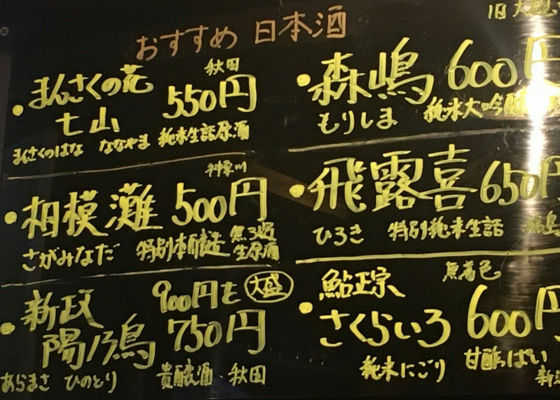 おすすめ 日本酒
秋田
まんさくの花 550円
七山
まんさくのはな ななやま 純米生詰原酒
神奈川
相模灘 500円
さがみなだ 特別本醸造 無ろ過
生原酒
新政 900円を 大盛
陽乃鳥 750円
あらまさ ひのとり 貴醸酒・秋田
森嶋 600円
もりしま 純米大吟醸
飛露喜 650円
ひろき 特別純米生詰
鮎正宗 無着色
さくらいろ 600円
純米にごり 甘酸っぱい